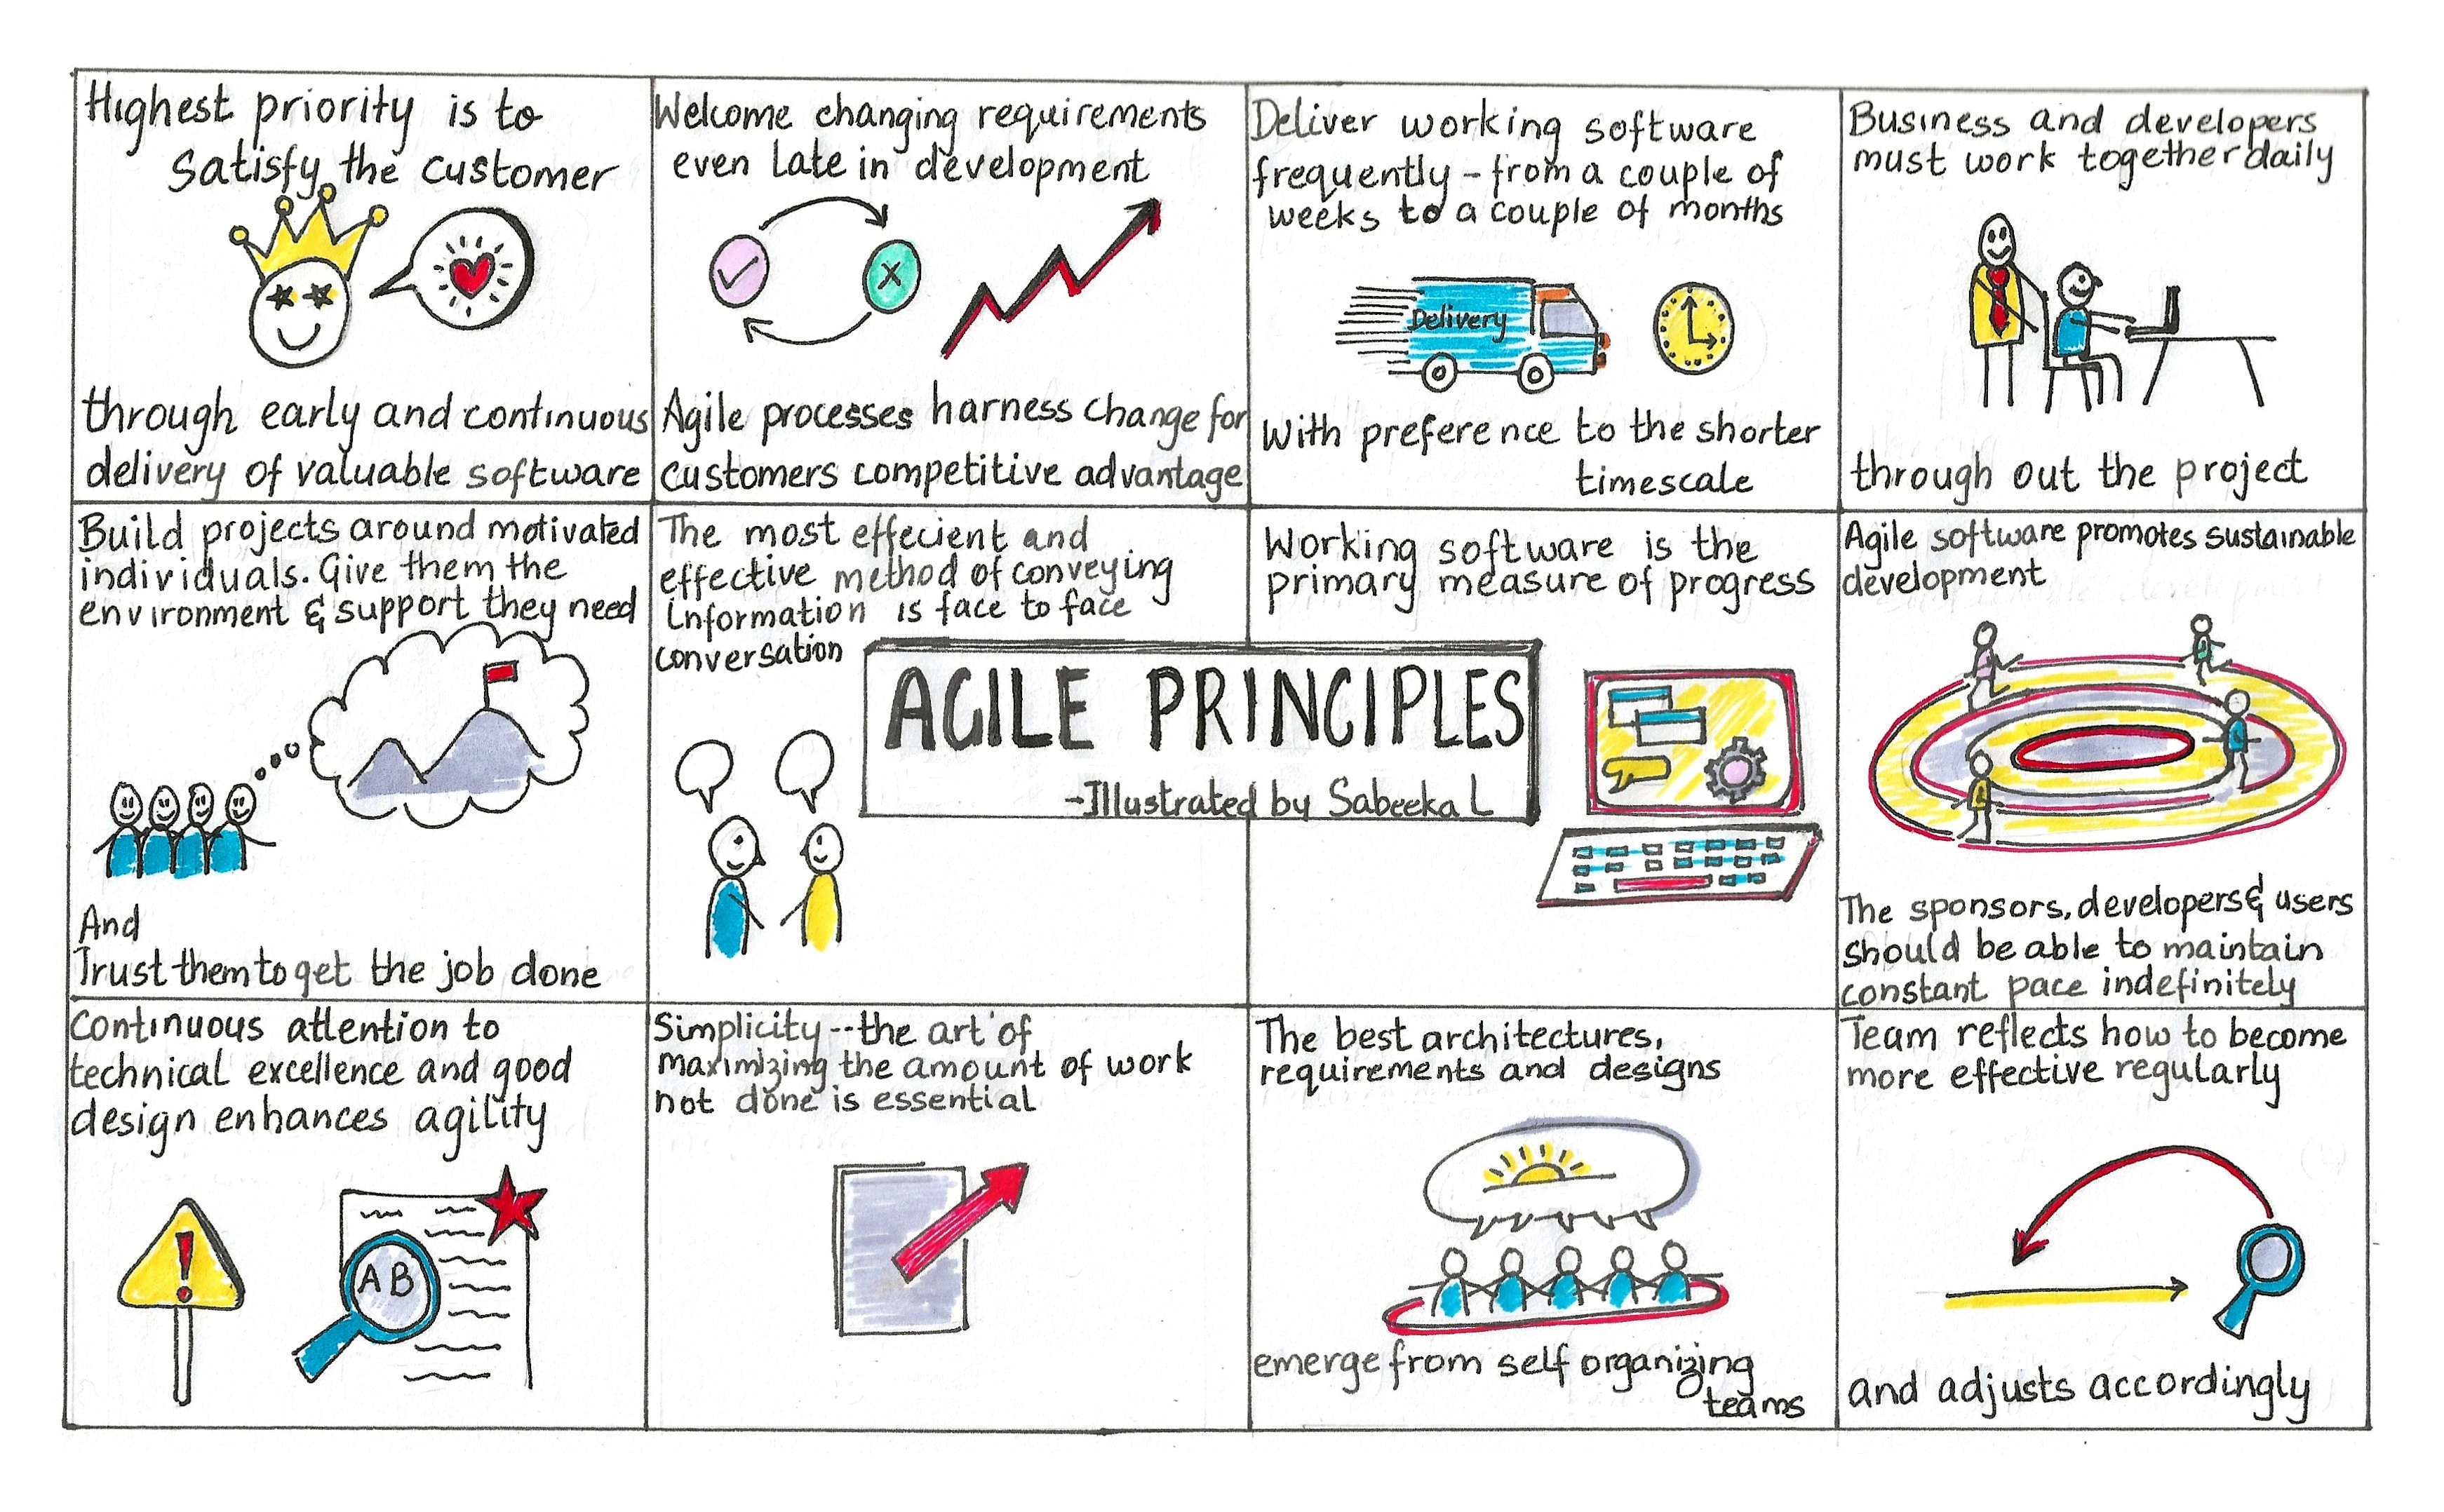 Highest priority is to
satisfy the customer
through early and continuous
delivery of valuable software
Welcome changing requirements
even late in development
Agile processes harness change for
customers competitive advantage
Deliver working software
frequently - from a couple of
weeks to a couple of months
Delivery
With preference to the shorter
timescale
Business and developers
must work together daily
through out the project
Build projects around motivated
individuals. Give them the
environment & support they need
And
Trust them to get the job done
The most effecient and
effective method of conveying
Information is face to face
conversation
AGILE PRINCIPLES
-Illustrated by Sabeeka L
Working software is the
primary measure of progress
Agile software promotes sustainable
development
The sponsors, developers & users
should be able to maintain
constant pace indefinitely
Continuous attention to
technical excellence and good
design enhances agility
AB
Simplicity--the art of
maximizing the amount of work
not done is essential
The best architectures,
requirements and designs
emerge from self organizing
teams
Team reflects how to become
more effective regularly
and adjusts accordingly